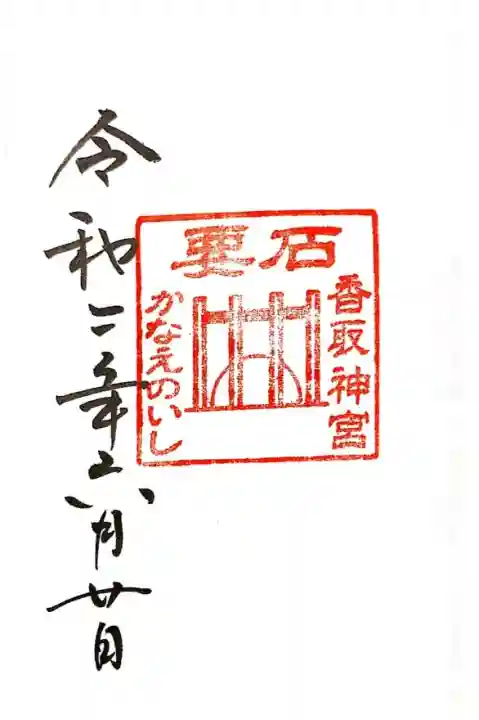 要石
香取神宮
かなえのいし
令和二年六月廿日